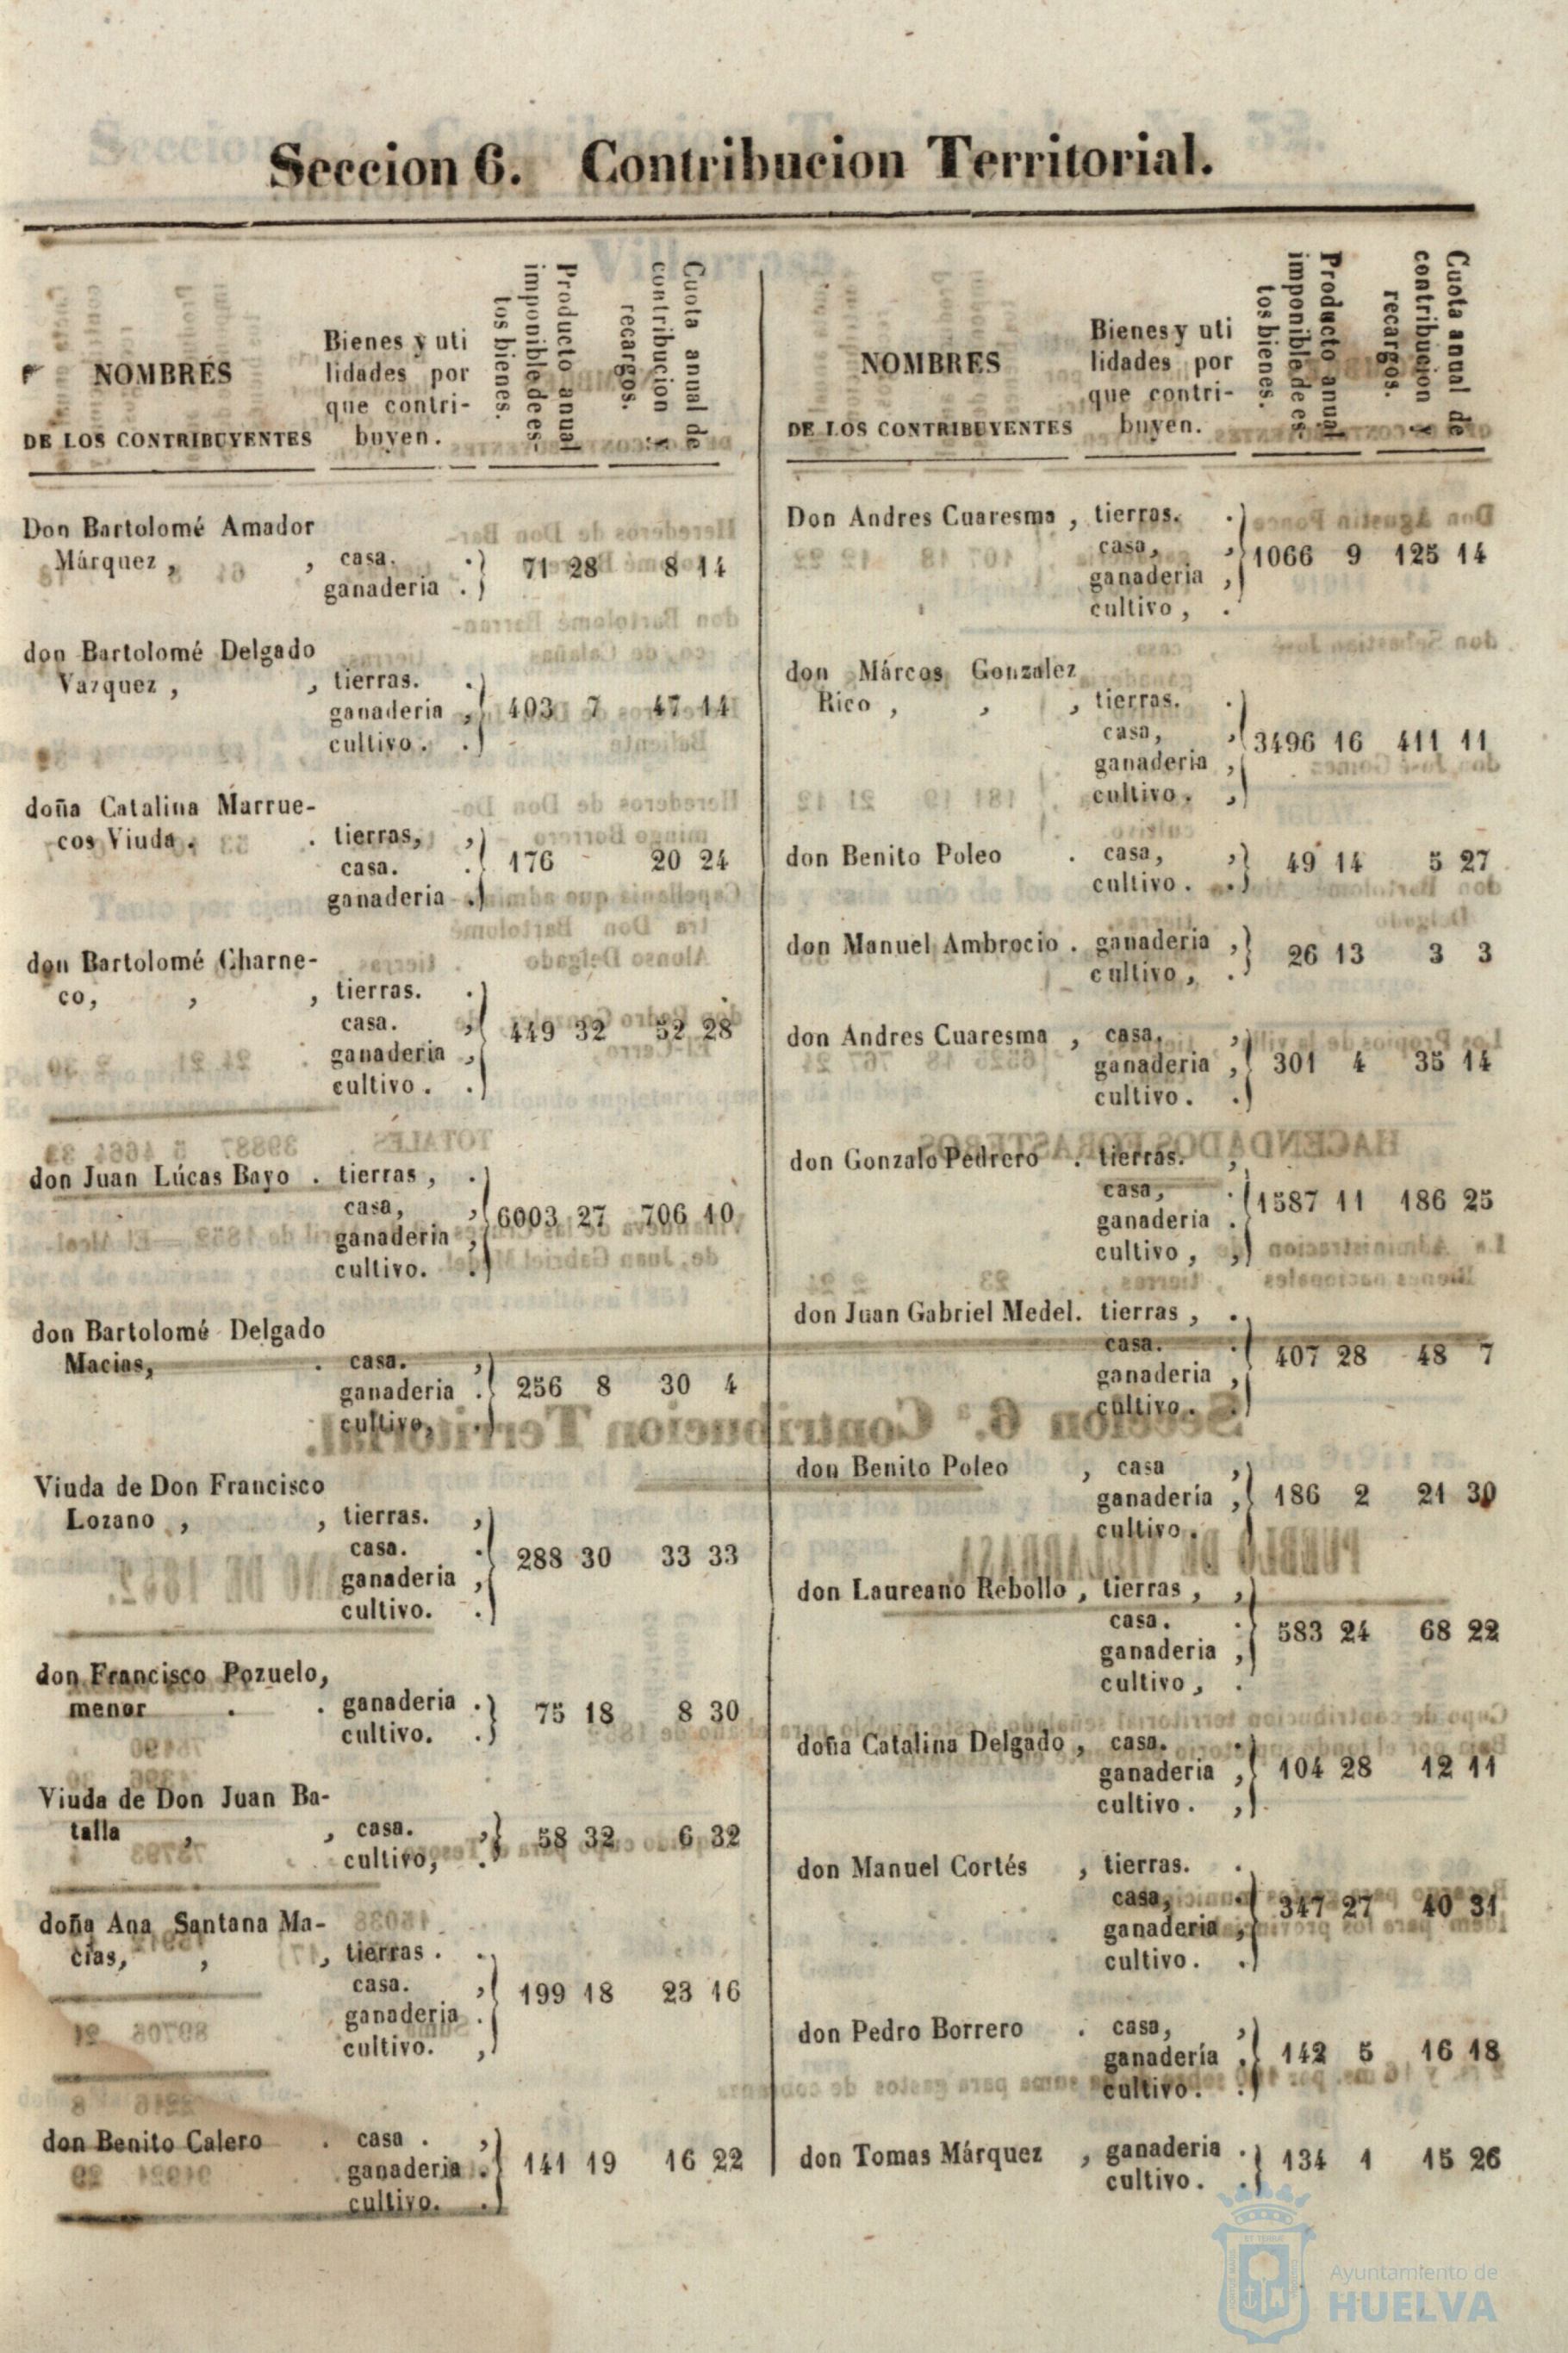 Seccion 6. Contribucion Territorial.
NOMBRES
DE LOS CONTRIBUYENTES
Bienes y uti
lidades por
que contri-
buyen.
Producto anual
imponible de es-
tos bienes.
Cuota anual de
contribucion y
recargos.
Don Bartolomé Amador
Márquez , , casa. .
ganaderia . 71 28 8 14
don Bartolomé Delgado
Vazquez , , tierras. .
ganaderia , 403 7 47 14
cultivo . .
doña Catalina Marrue-
cos Viuda . . tierras, ,
casa. . 176 20 24
ganaderia .
don Bartolomé Charne-
co, , , tierras. .
casa. , 449 32 52 28
ganaderia ,
cultivo . .
don Juan Lúcas Bayo . tierras , .
casa, , 6003 27 706 10
ganaderia ,
cultivo. .
don Bartolomé Delgado
Macias, . casa. ,
ganaderia . 256 8 30 4
cultivo, .
Viuda de Don Francisco
Lozano , , tierras. ,
casa. . 288 30 33 33
ganaderia ,
cultivo. .
don Francisco Pozuelo,
menor . . ganaderia . 75 18 8 30
cultivo. .
Viuda de Don Juan Ba-
talla , , casa. , 58 32 6 32
cultivo, .
doña Ana Santana Ma-
cías, , , tierras . .
casa. , 199 18 23 16
ganaderia .
cultivo. ,
don Benito Calero . casa . ,
ganaderia . 141 19 16 22
cultivo. .
NOMBRES
DE LOS CONTRIBUYENTES
Bienes y uti
lidades por
que contri-
buyen.
Producto anual
imponible de es-
tos bienes.
Cuota anual de
contribucion y
recargos.
Don Andres Cuaresma , tierras. .
casa, , 1066 9 125 14
ganaderia ,
cultivo , .
don Márcos Gonzalez
Rico , , , tierras. .
casa, , 3496 16 411 11
ganaderia ,
cultivo . ,
don Benito Poleo . casa, , 49 14 5 27
cultivo . .
don Manuel Ambrocio . ganaderia , 26 13 3 3
cultivo , .
don Andres Cuaresma , casa. ,
ganaderia , 301 4 35 14
cultivo. .
don Gonzalo Pedrero . tierras. ,
casa, . 1587 11 186 25
ganaderia .
cultivo , ,
don Juan Gabriel Medel. tierras , .
casa. . 407 28 48 7
ganaderia ,
cultivo . .
don Benito Poleo , casa ,
ganadería , 186 2 21 30
cultivo .
don Laureano Rebollo , tierras , ,
casa. . 583 24 68 22
ganaderia ,
cultivo , .
doña Catalina Delgado , casa. .
ganaderia , 104 28 12 11
cultivo . ,
don Manuel Cortés , tierras. .
casa, . 347 27 40 31
ganaderia ,
cultivo. .
don Pedro Borrero . casa, ,
ganadería . 142 5 16 18
cultivo. .
don Tomas Márquez , ganaderia . 134 1 15 26
cultivo. .
Ayuntamiento de
HUELVA